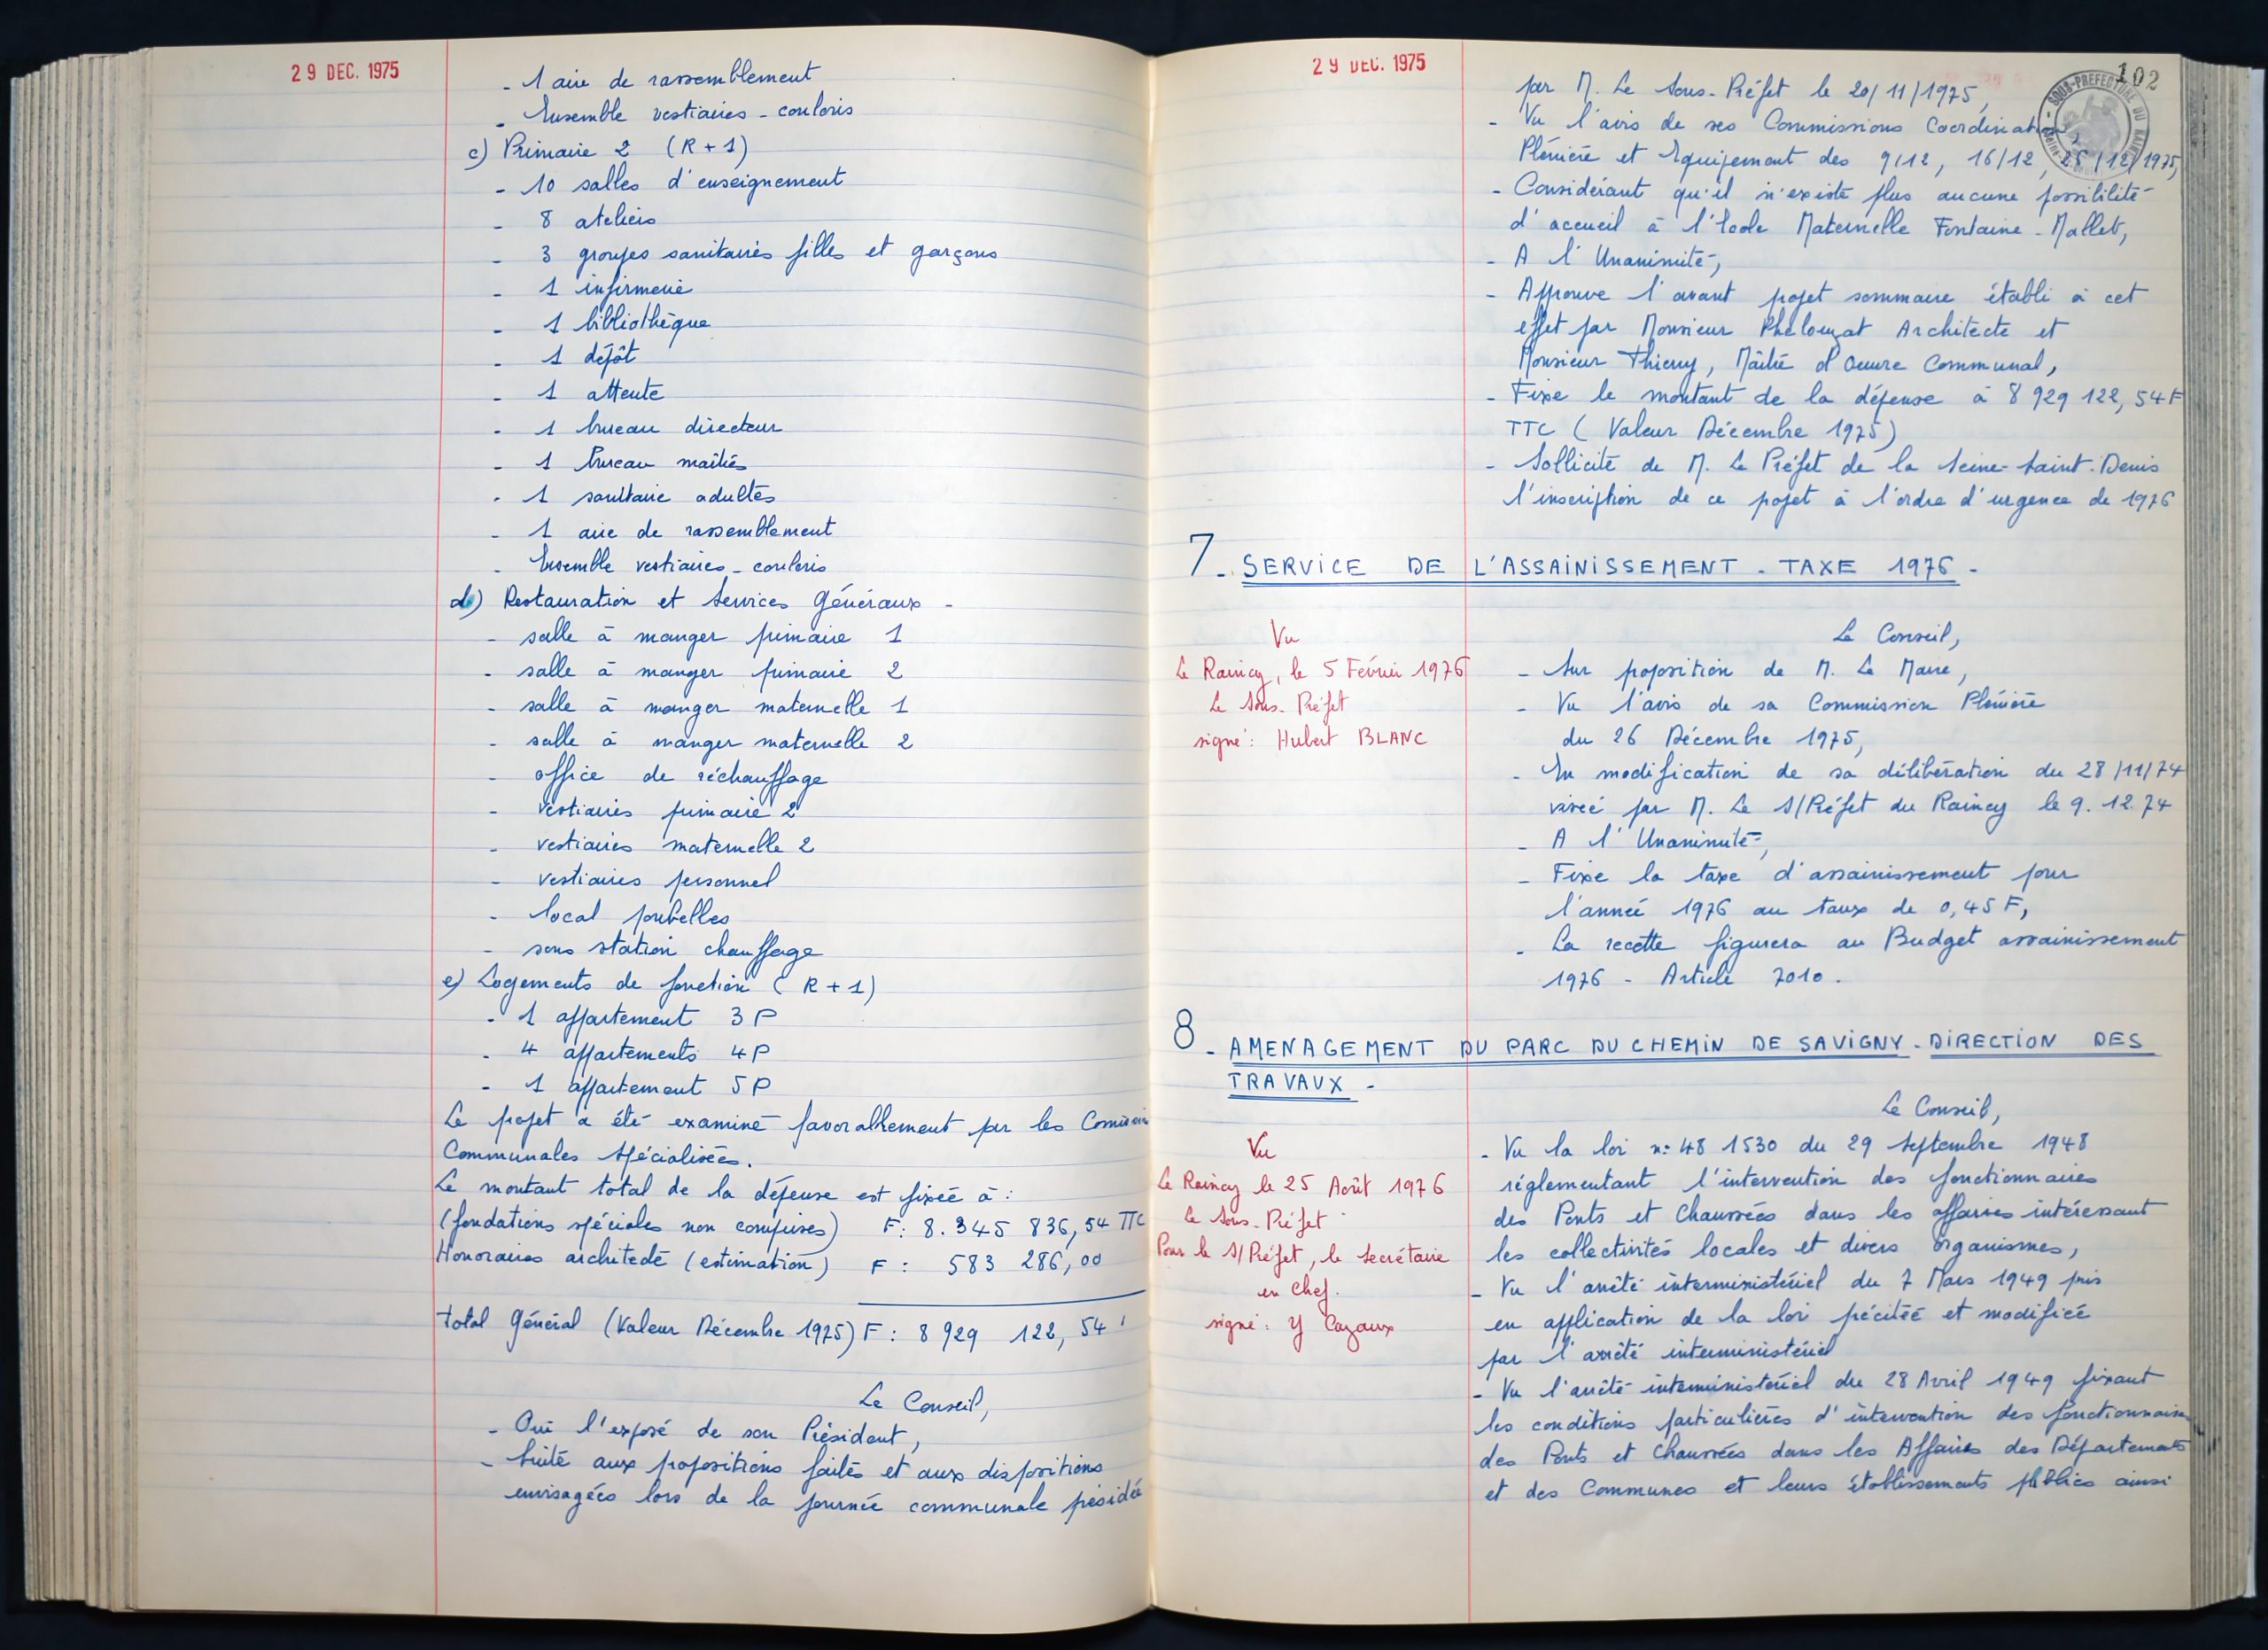 29 DEC. 1975
- 1 aire de rassemblement
- Ensemble vestiaires - couloirs
c) Primaire 2 (R + 1)
- 10 salles d'enseignement
- 8 ateliers
- 3 groupes sanitaires filles et garçons
- 1 infirmerie
- 1 bibliothèque
- 1 dépôt
- 1 attente
- 1 bureau directeur
- 1 bureau maîtres
- 1 sanitaire adultes
- 1 aire de rassemblement
- Ensemble vestiaires - couloirs
d) Restauration et Services Généraux -
- salle à manger primaire 1
- salle à manger primaire 2
- salle à manger maternelle 1
- salle à manger maternelle 2
- office de réchauffage
- vestiaires primaire 2
- vestiaires maternelle 2
- vestiaires personnel
- local poubelles
- sous station chauffage
e) Logements de fonction (R + 1)
- 1 appartement 3 P
- 4 appartements 4 P
- 1 appartement 5 P
Le projet a été examiné favorablement par les
Communales Spécialisées.
Le montant total de la dépense est fixée à :
(fondations spéciales non comprises) F: 8.345 836,54 TTC
Honoraires architecte (estimation) F : 583 286,00
Total Général (Valeur Décembre 1975) F : 8 929 122, 54
Le Conseil,
- Ouï l'exposé de son Président,
- Suite aux propositions faites et aux dispositions
envisagées lors de la journée communale présidée
29 DEC. 1975
102
SOUS-PREFECTURE DU RAINCY
par M. Le Sous-Préfet le 20/11/1975,
- Vu l'avis de ses Commissions Coordination,
Plénière et Equipement des 9/12, 16/12, 26/12/1975,
- Considérant qu'il n'existe plus aucune possibilité
d'accueil à l'Ecole Maternelle Fontaine-Mallet,
- A l'Unanimité,
- Approuve l'avant projet sommaire établi à cet
effet par Monsieur Phelouzat Architecte et
Monsieur Thierry, Maître d'Oeuvre Communal,
- Fixe le montant de la dépense à 8 929 122, 54 F
TTC (Valeur Décembre 1975)
- Sollicite de M. Le Préfet de la Seine-Saint-Denis
l'inscription de ce projet à l'ordre d'urgence de 1976
7 - SERVICE DE L'ASSAINISSEMENT - TAXE 1976 -
Vu
Le Raincy, le 5 Février 1976
Le Sous-Préfet
signé : Hubert BLANC
Le Conseil,
- Sur proposition de M. Le Maire,
- Vu l'avis de sa Commission Plénière
du 26 Décembre 1975,
- En modification de sa délibération du 28/11/74
visée par M. Le S/Préfet du Raincy le 9.12.74
- A l'Unanimité,
- Fixe la taxe d'assainissement pour
l'année 1976 au taux de 0,45 F,
- La recette figurera au Budget assainissement
1976 - Article 7010.
8 - AMENAGEMENT DU PARC DU CHEMIN DE SAVIGNY - DIRECTION DES
TRAVAUX -
Vu
Le Raincy le 25 Août 1976
Le Sous-Préfet
Pour le S/Préfet, le Secrétaire
en Chef.
signé : Y Cazaux
Le Conseil,
- Vu la loi n: 48 1530 du 29 Septembre 1948
réglementant l'intervention des fonctionnaires
des Ponts et Chaussées dans les affaires intéressant
les collectivités locales et divers organismes,
- Vu l'arrêté interministériel du 7 Mars 1949 pris
en application de la loi précitée et modifiée
par l'arrêté interministériel
- Vu l'arrêté interministériel du 28 Avril 1949 fixant
les conditions particulières d'intervention des fonctionnaires
des Ponts et Chaussées dans les Affaires des Départements
et des Communes et leurs établissements publics ainsi